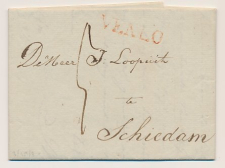 VENLO
De Heer J. Loopuit
te
Schiedam